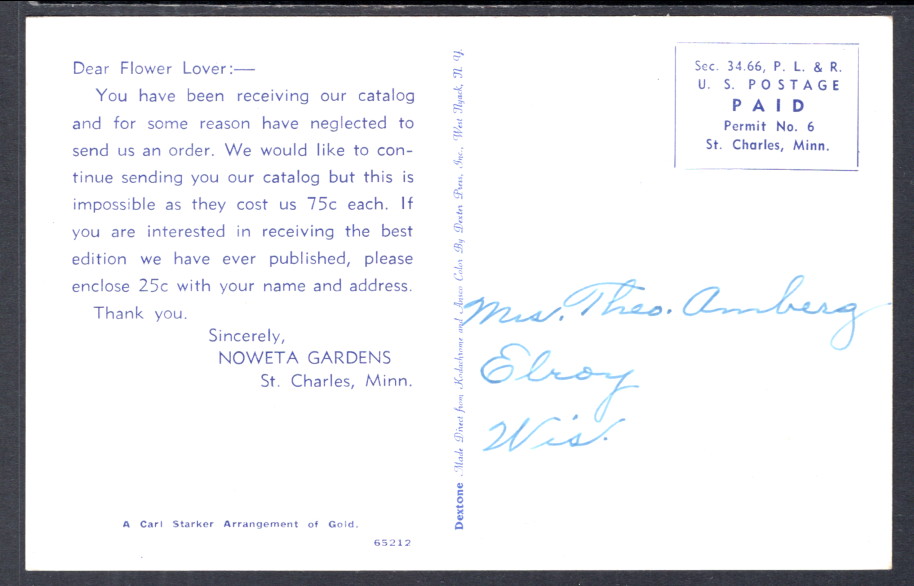 Dear Flower Lover:—
You have been receiving our catalog
and for some reason have neglected to
send us an order. We would like to con-
tinue sending you our catalog but this is
impossible as they cost us 75c each. If
you are interested in receiving the best
edition we have ever published, please
enclose 25c with your name and address.
Thank you.
Sincerely,
NOWETA GARDENS
St. Charles, Minn.
A Carl Starker Arrangement of Gold.
65212
Dextone Made Direct from Kodachrome and Ansco Color By Dexter Press, Inc., West Nyack, N. Y.
Sec. 34.66, P. L. & R.
U. S. POSTAGE
PAID
Permit No. 6
St. Charles, Minn.
Mrs. Theo. Amberg
Elroy
Wis.